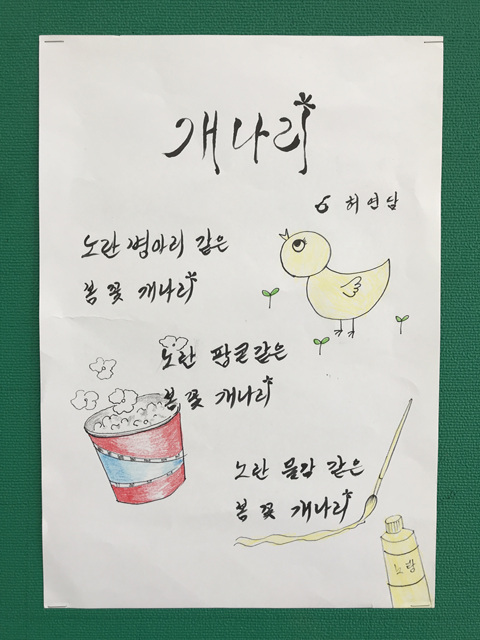 개나리
허연담
노란 병아리 같은
봄 꽃 개나리
노란 팡콘같은
봄 꽃 개나리
노란 물감 같은
봄 꽃 개나리
노랑